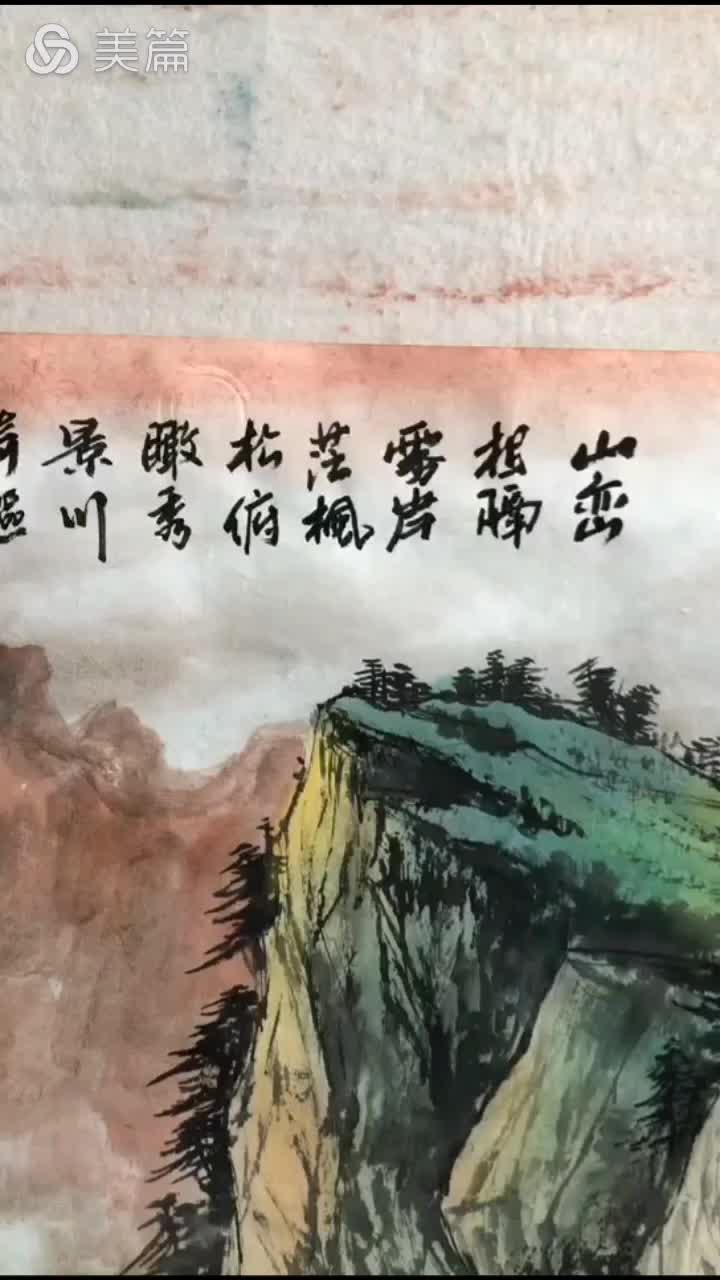 美篇
山峦
相隔
雾岸
茫枫
松俯
瞰秀
景川